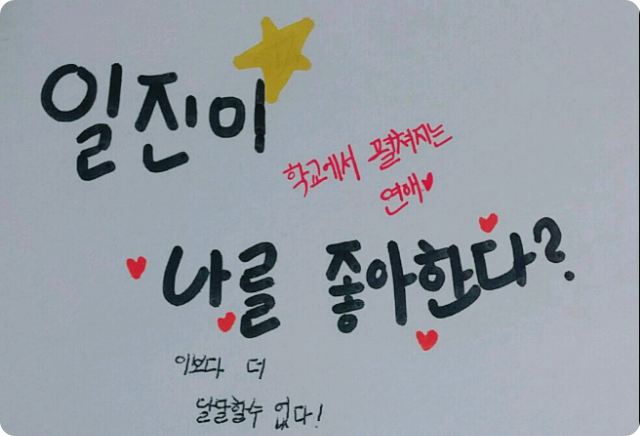 일진미
학교에서 펼쳐지는
연애
나를 좋아한다?
이보다 더
달달할수 없다!